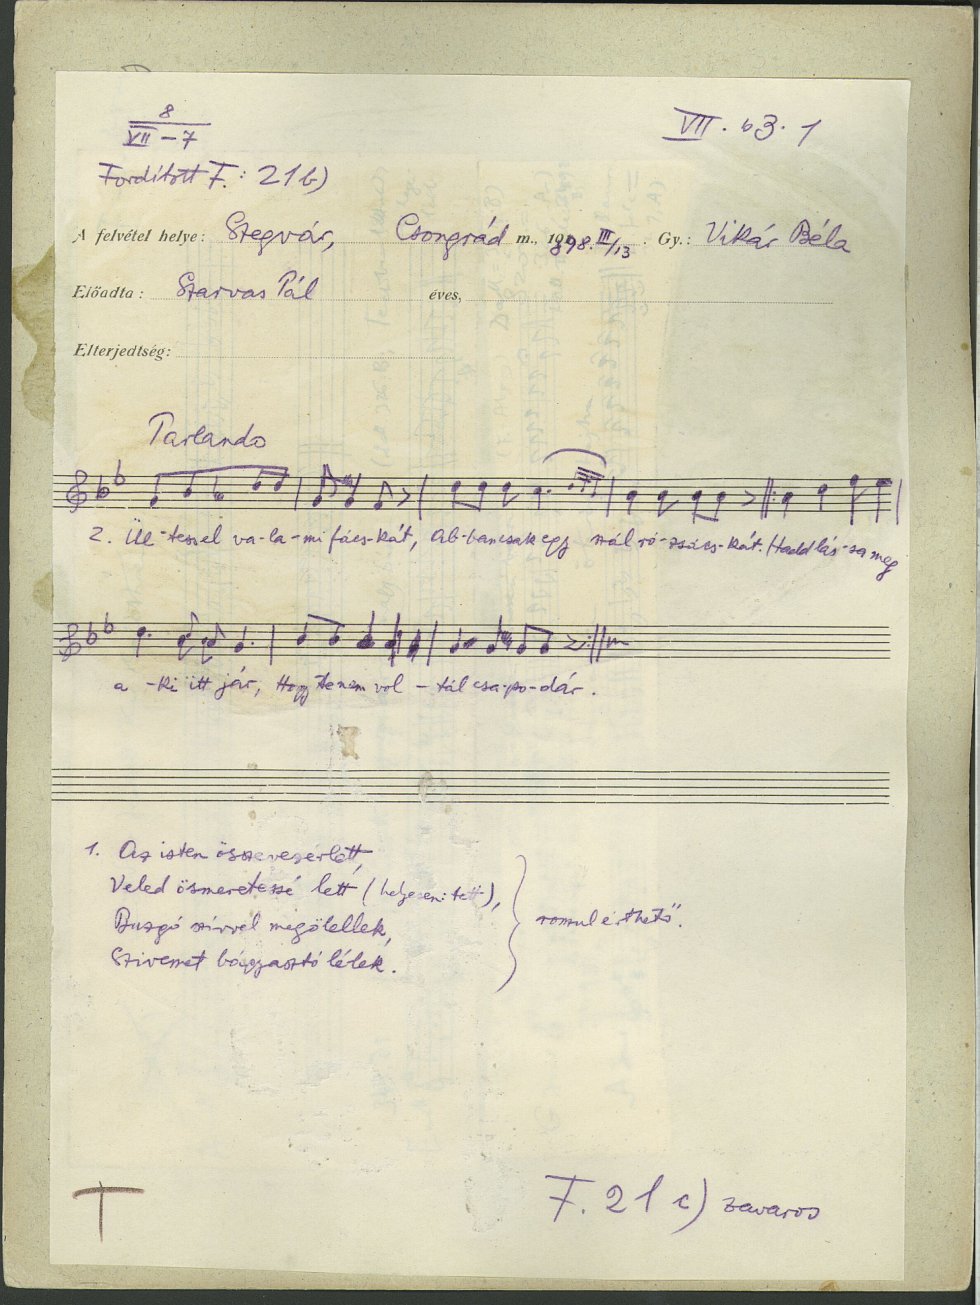 8
VII - 7
VII. b3. 1
Fordított F.: 21 b)
A felvétel helye: Szegvár, Csongrád m., 1898. III/13. Gy.: Vikár Béla
Előadta: Szarvas Pál éves,
Elterjedtség:
Parlando
2. Ül-tessel va-la-mi fács-kát, Ab-ban csak egy szál ró-zsács-kát. Hadd lás-sa meg
a -ki itt jár, Hogy te nem vol - tál csa-po-dár.
1. Az isten összevezérlett,
Veled ösmeretessé lett
Buzgó szívvel megölellek,
Szivemet lélek.
rosszul érthető.
T
F. 21 c) zavaros